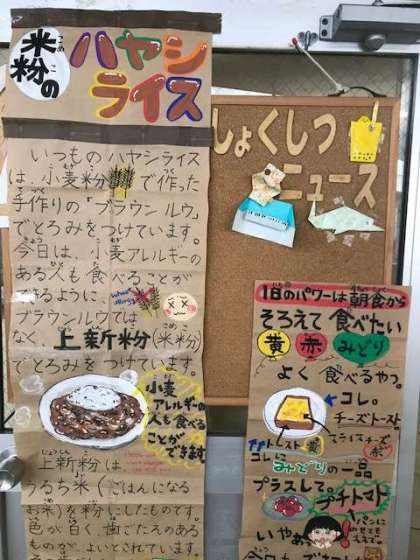 米粉の
こめこ
ハヤシ
ライス
いつものハヤシライス
は、小麦粉で作った
手作りの「ブラウンルウ」
でとろみをつけています。
今日は、小麦アレルギーの
ある人も食べることが
できるように、
ブラウンルウでは
なく、上新粉(米粉)
でとろみをつけています。
小麦
アレルギーの
人も食べる
ことが
できます。
上新粉は
うるち米(ごはんになる
お米)を粉にしたものです。
色が白く、歯ごたえのある
ものが、よいとされています。
しょくしつ
ニュース
1日のパワーは朝食から
そろえて食べたい
黄 赤 みどり
よく食べるやつ。
コレ。
チーズトースト。
トースト 黄
スライスチーズ 赤
コレに
みどりの一品
プラスして。
プチトマト
パンに
のせても
いやぁ